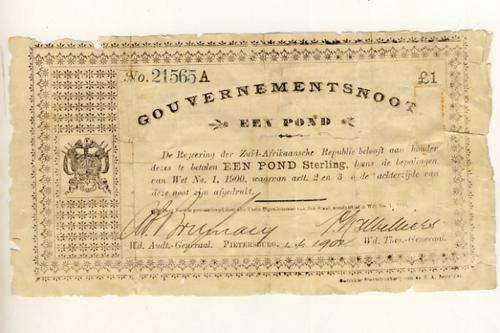 No. 21565 A £1
GOUVERNEMENTSNOOT
EEN POND
De Regeering der Zuid-Afrikaansche Republie belooft aan houder
dezes te betalen EEN POND Sterling, loens de bepalingen
van Wet No. 1, 1900, waarvan artt. 2 en 3 o de achterzijde van
deze noot zijn afgedrukt.
Wd. Audt.-Generaal. PIETERSBURG, 1901 Wd. Thes.-Generaal.